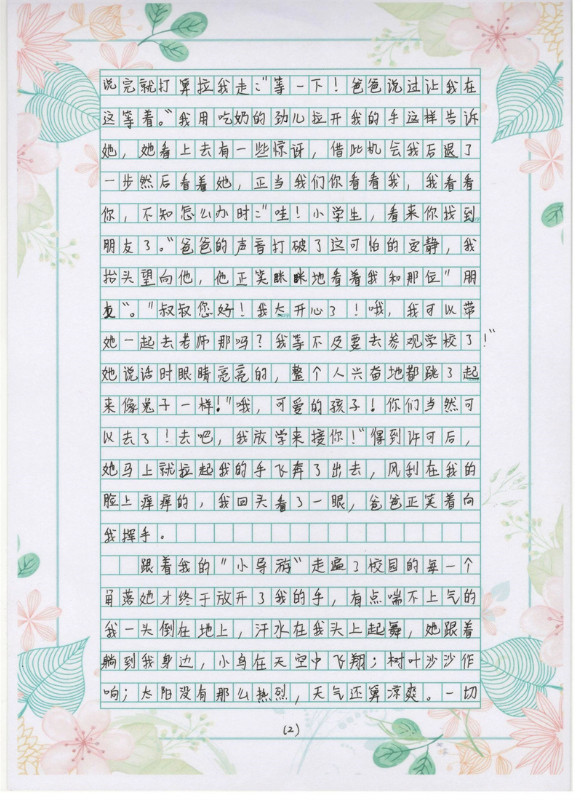 说完就打算拉我走:“等一下！爸爸说过让我在
这等着。”我用吃奶的劲儿拉开我的手这样告诉
她，她看上去有一些惊讶，借此机会我后退了
一步然后看着她，正当我们你看看我，我看看
你，不知怎么办时:“哇！小学生，看来你找到
朋友了。”爸爸的声音打破了这可怕的安静，我
抬头望向他，他正笑眯眯地看着我和那位“朋
友”。“叔叔您好！我太开心了！哦，我可以带
她一起去老师那吗？我等不及要去参观学校了！”
她说话时眼睛亮亮的，整个人兴奋地都跳了起
来像兔子一样！“哦，可爱的孩子！你们当然可
以去了！去吧，我放学来接你！”得到许可后，
她马上就拉起我的手飞奔了出去，风刮在我的
脸上痒痒的，我回头看了一眼，爸爸正笑着向
我挥手。
跟着我的“小导游”走遍了校园的每一个
角落她才终于放开了我的手，有点喘不上气的
我一头倒在地上，汗水在我头上起舞，她跟着
躺到我身边，小鸟在天空中飞翔；树叶沙沙作
响；太阳没有那么热烈，天气还算凉爽。一切
(2)